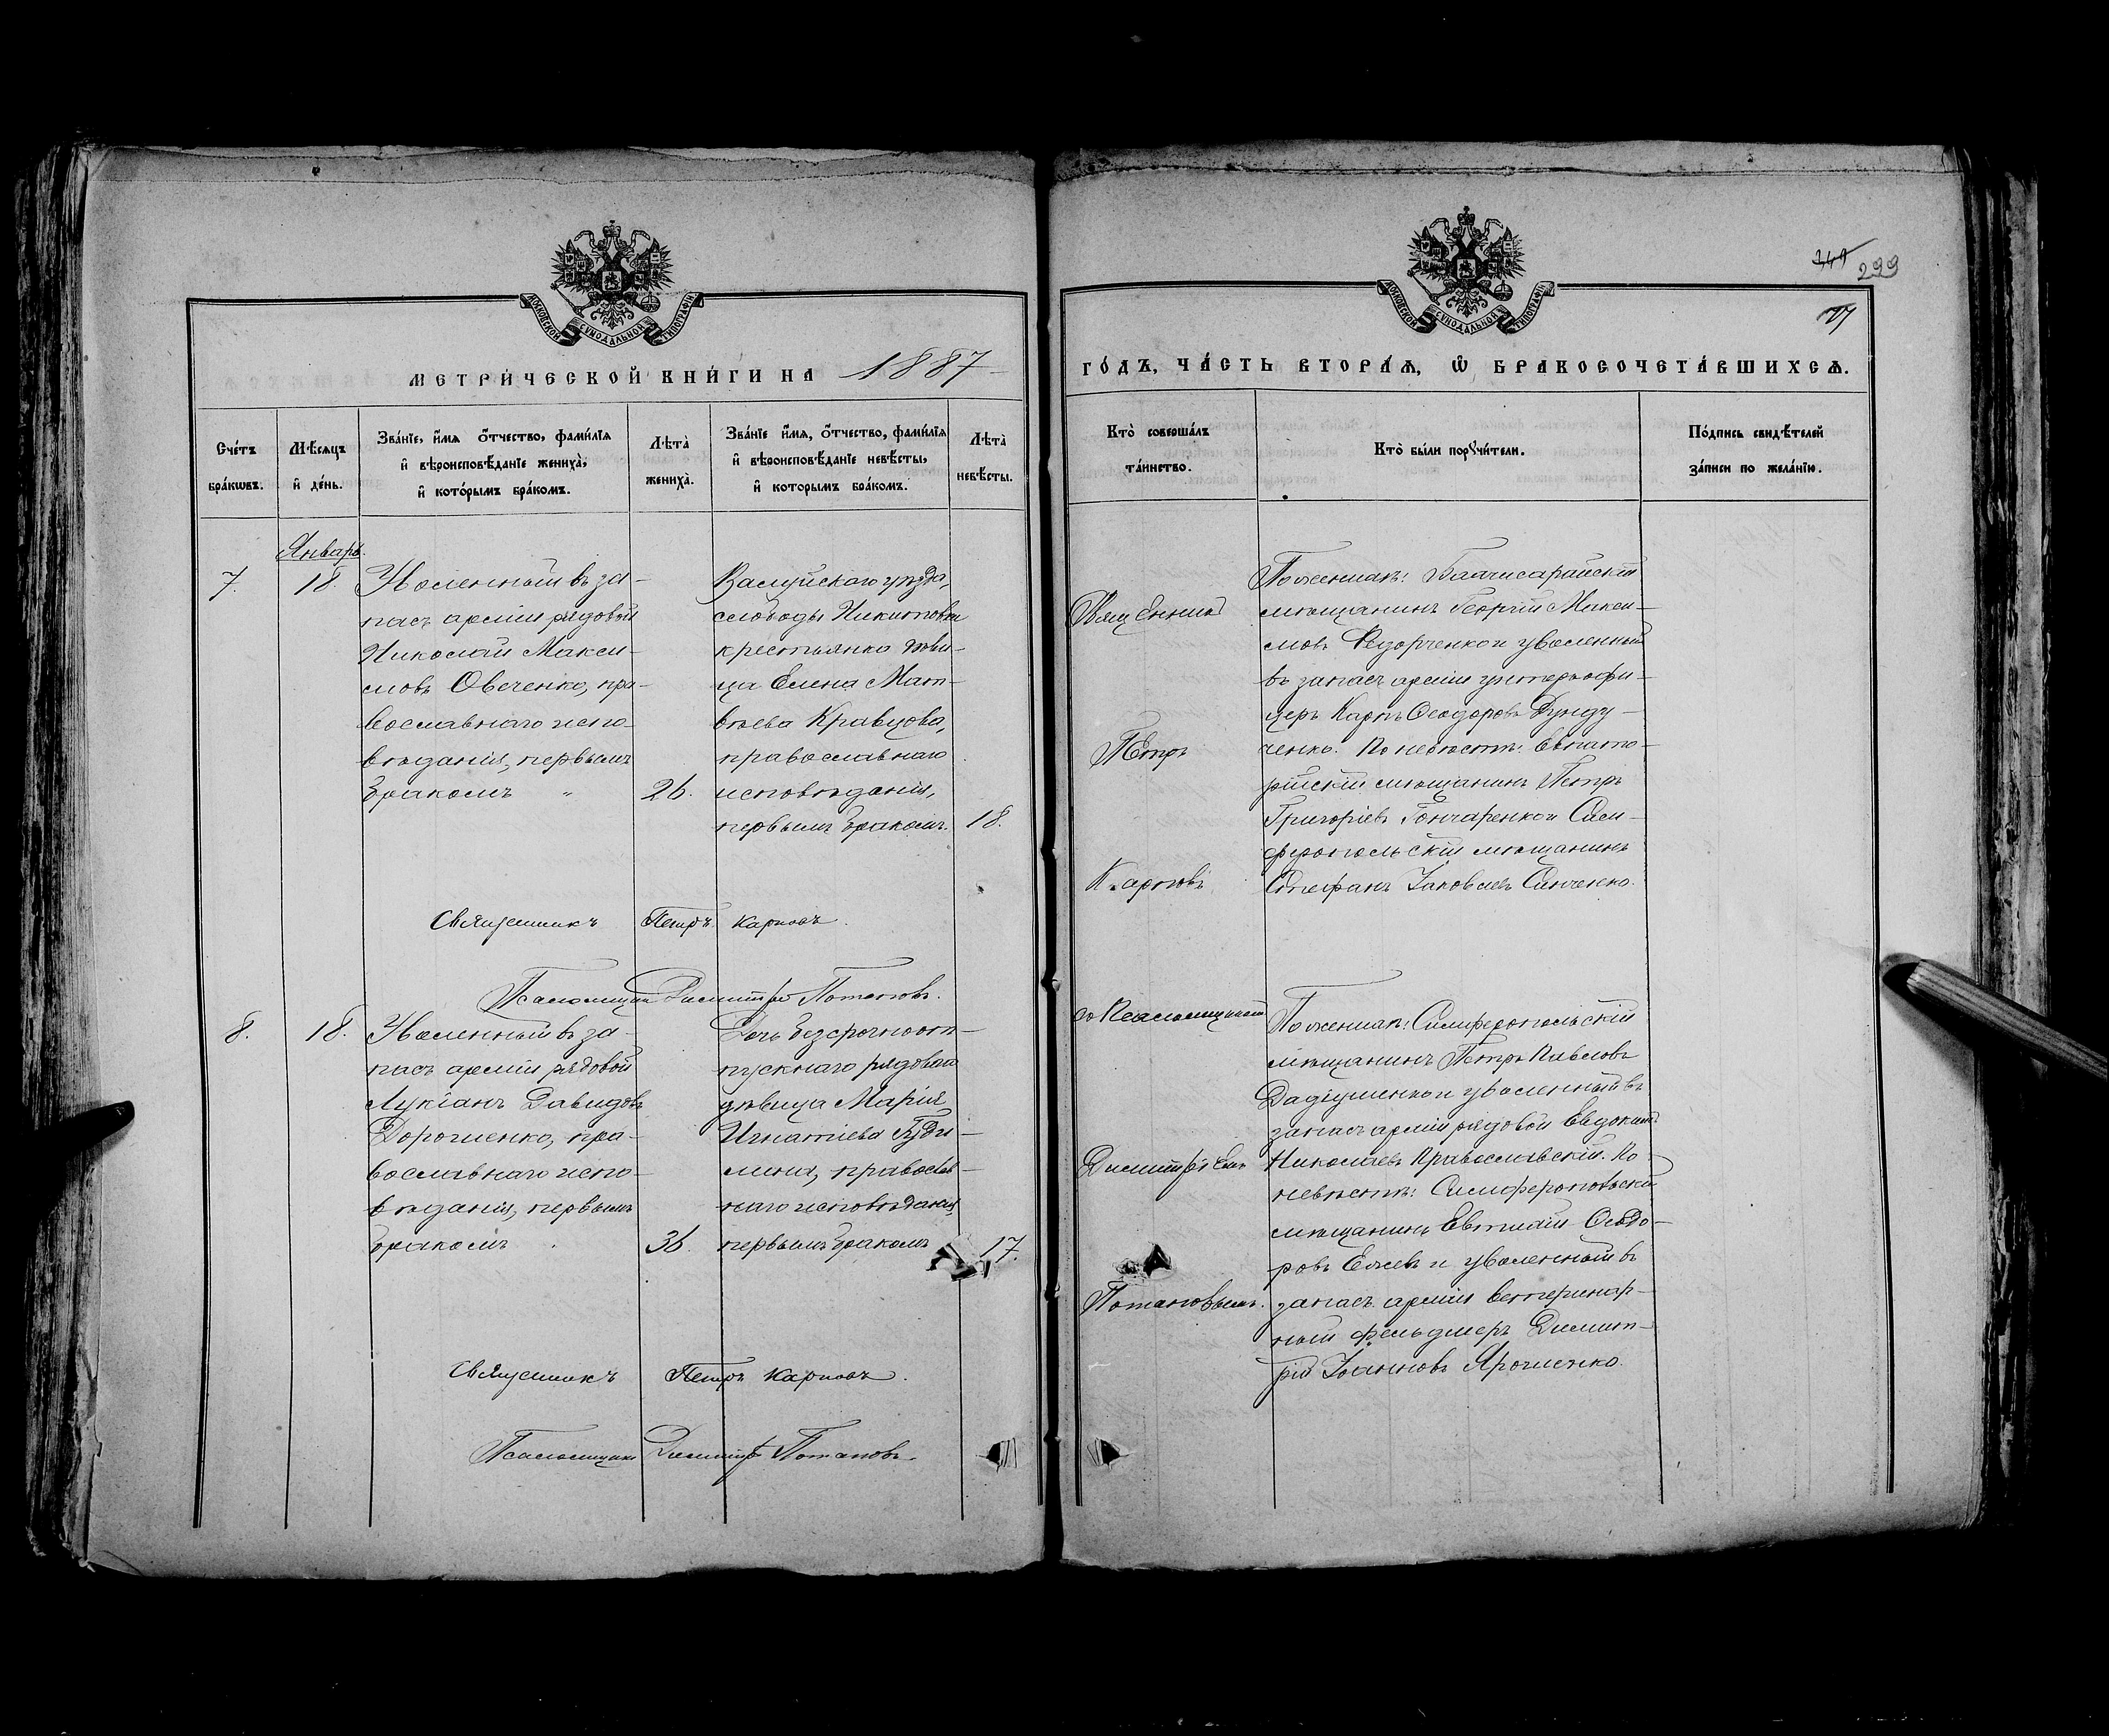 349 299
МОСКОВСКОЙ СѴНОДАЛЬНОЙ ТИПОГРАФІИ
МОСКОВСКОЙ СѴНОДАЛЬНОЙ ТИПОГРАФІИ
МЕТРИ́ЧЕСКОЙ КНИ́ГИ НА 1887
ГО́ДЪ, ЧА́СТЬ ВТОРА́Ѧ, Ѡ БРАКОСОЧЕТА́ВШИХСѦ.
Сче́тъ бра́кѡвъ.
Мѣ́сѧцъ и де́нь.
Зва́нїе, и́мѧ о́тчество, фами́лїѧ
и вѣроисповѣ́данїе жениха̀,
и кото́рымъ бра́комъ.
Лѣта̀ жениха̀.
Зва́нїе и́мѧ, о́тчество, фами́лїѧ
и вѣроисповѣ́данїе невѣ́сты,
и которымъ бра́комъ.
Лѣта̀ невѣ́сты.
Кто̀ соверша́лъ та́инство.
Кто̀ бы́ли порꙋчи́тели.
По́дпись свидѣ́телей за́писи по жела́нїю.
Январь.
7.
18.
Уволенный въ за-
пасъ арміи рядовый
Николай Макси-
мовъ Овсченко, пра-
вославнаго испо-
вѣданія, первымъ
бракомъ "
26.
Валуйскаго уѣзда,
слободы Никитовки
крестьянка дѣви-
ца Елена Мат-
вѣева Кравцова,
православнаго
исповѣданія,
первымъ бракомъ.
18.
Священникъ
Петръ
Карповъ
По женихѣ: Бахчисарайскій
мѣщанинъ Георгій Макси-
мовъ Федорченко и уволенный
въ запасъ арміи унтеръ-офи-
церъ Карпъ Ѳеодоровъ Дунду-
ченко. По невѣстѣ: Евпато-
рійскій мѣщанинъ Петръ
Григоріевъ Гончаренко и Сим-
феропольскій мѣщанинъ
Стефанъ Іаковлевъ Синченко.
Священникъ Петръ Карповъ.
Псаломщикъ Димитрій Потаповъ.
8.
18.
Уволенный въ за-
пасъ арміи рядовой
Лукіанъ Давидовъ
Дорошенко, пра-
вославнаго испо-
вѣданія, первымъ
бракомъ
36.
Дочь безсрочноот-
пускнаго рядоваго
дѣвица Марія
Игнатіева
православ-
наго исповѣданія,
первымъ бракомъ
17.
со Псаломщикомъ
Димитріемъ
Потаповымъ.
По женихѣ: Симферопольскій
мѣщанинъ Петръ Павловъ
и уволенный въ
запасъ арміи рядовой Евдокимъ
Николаевъ Православскій. По
невѣстѣ: Симферопольскій
мѣщанинъ Евтихій Ѳеодо-
ровъ и уволенный въ
запасъ арміи ветеринар-
ный фельдшеръ Димит-
рій Іоанновъ Ярошенко.
Священникъ Петръ Карповъ.
Псаломщикъ Димитрій Потаповъ.